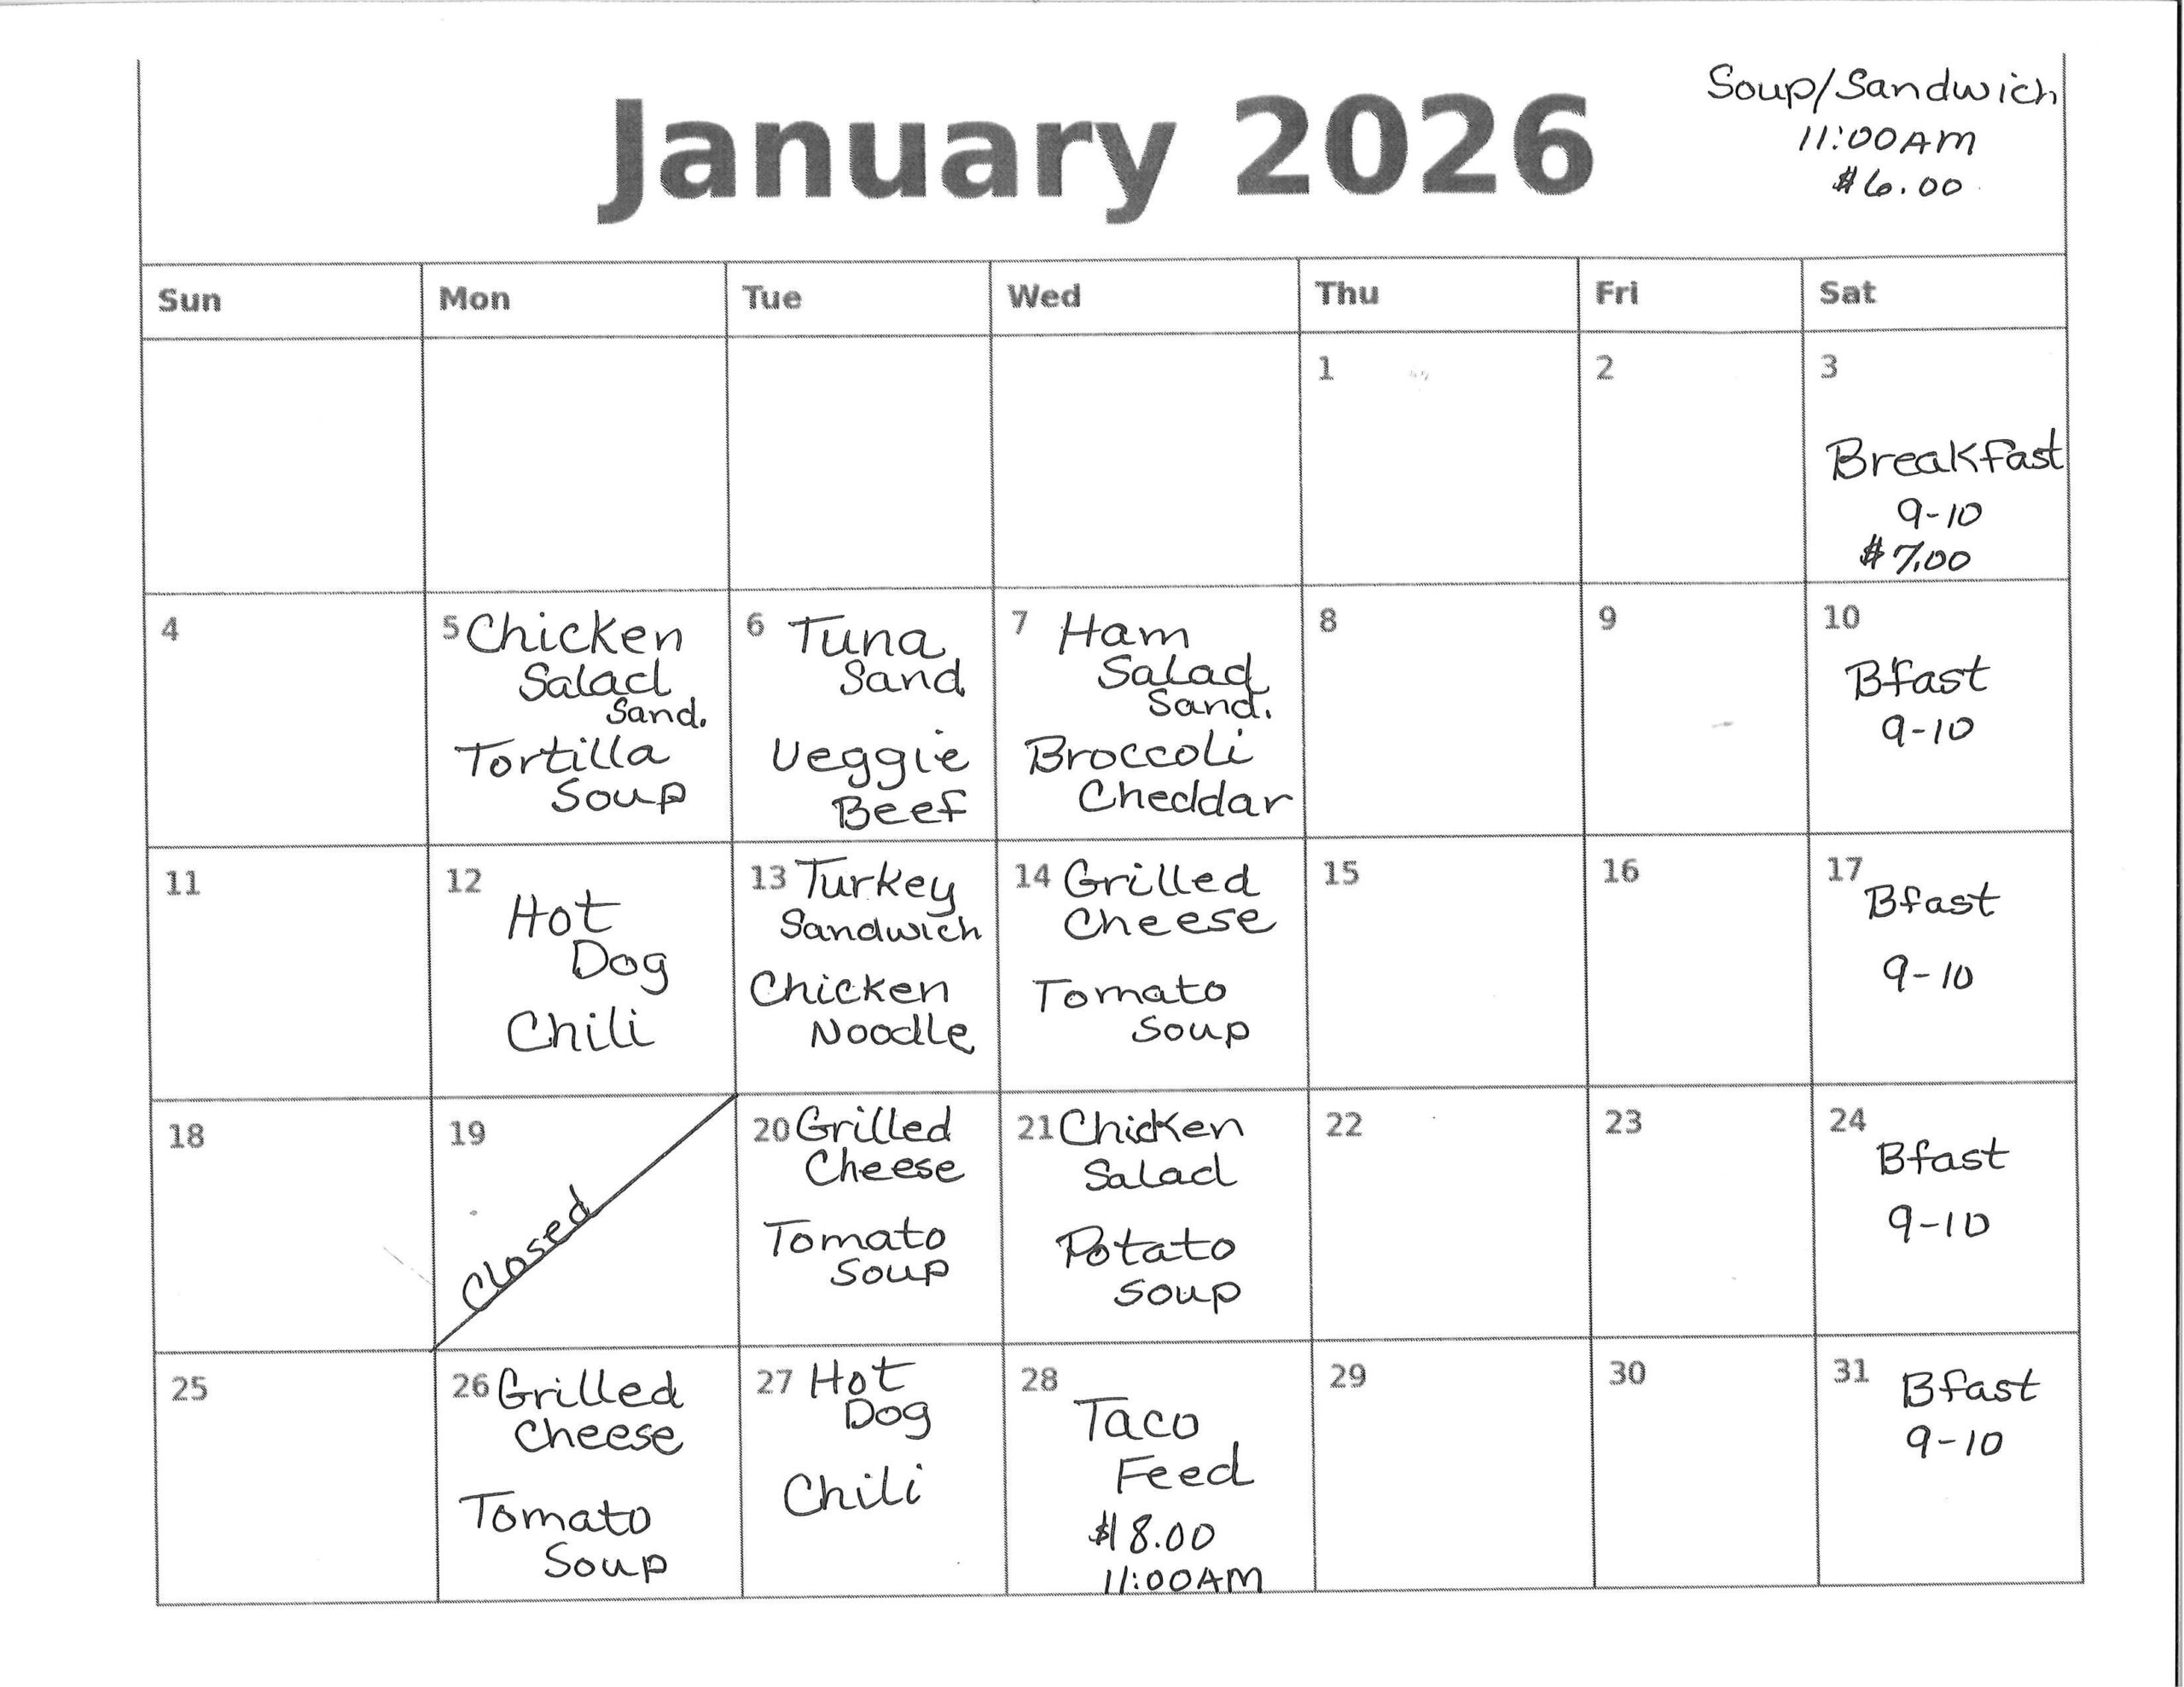 January 2026
Soup/Sandwich
11:00AM
$6.00
Sun Mon Tue Wed Thu Fri Sat
1
2
3
Breakfast
9-10
$7.00
4
5 Chicken
Salad
Sand.
Tortilla
Soup
6 Tuna
Sand
Veggie
Beef
7 Ham
Salad
Sand.
Broccoli
Cheddar
8
9
10
Bfast
9-10
11
12
Hot
Dog
Chili
13 Turkey
Sandwich
Chicken
Noodle
14 Grilled
Cheese
Tomato
Soup
15
16
17
Bfast
9-10
18
19
Closed
20 Grilled
Cheese
Tomato
Soup
21 Chicken
Salad
Potato
Soup
22
23
24
Bfast
9-10
25
26 Grilled
Cheese
Tomato
Soup
27 Hot
Dog
Chili
28
Taco
Feed
$8.00
11:00AM
29
30
31 Bfast
9-10